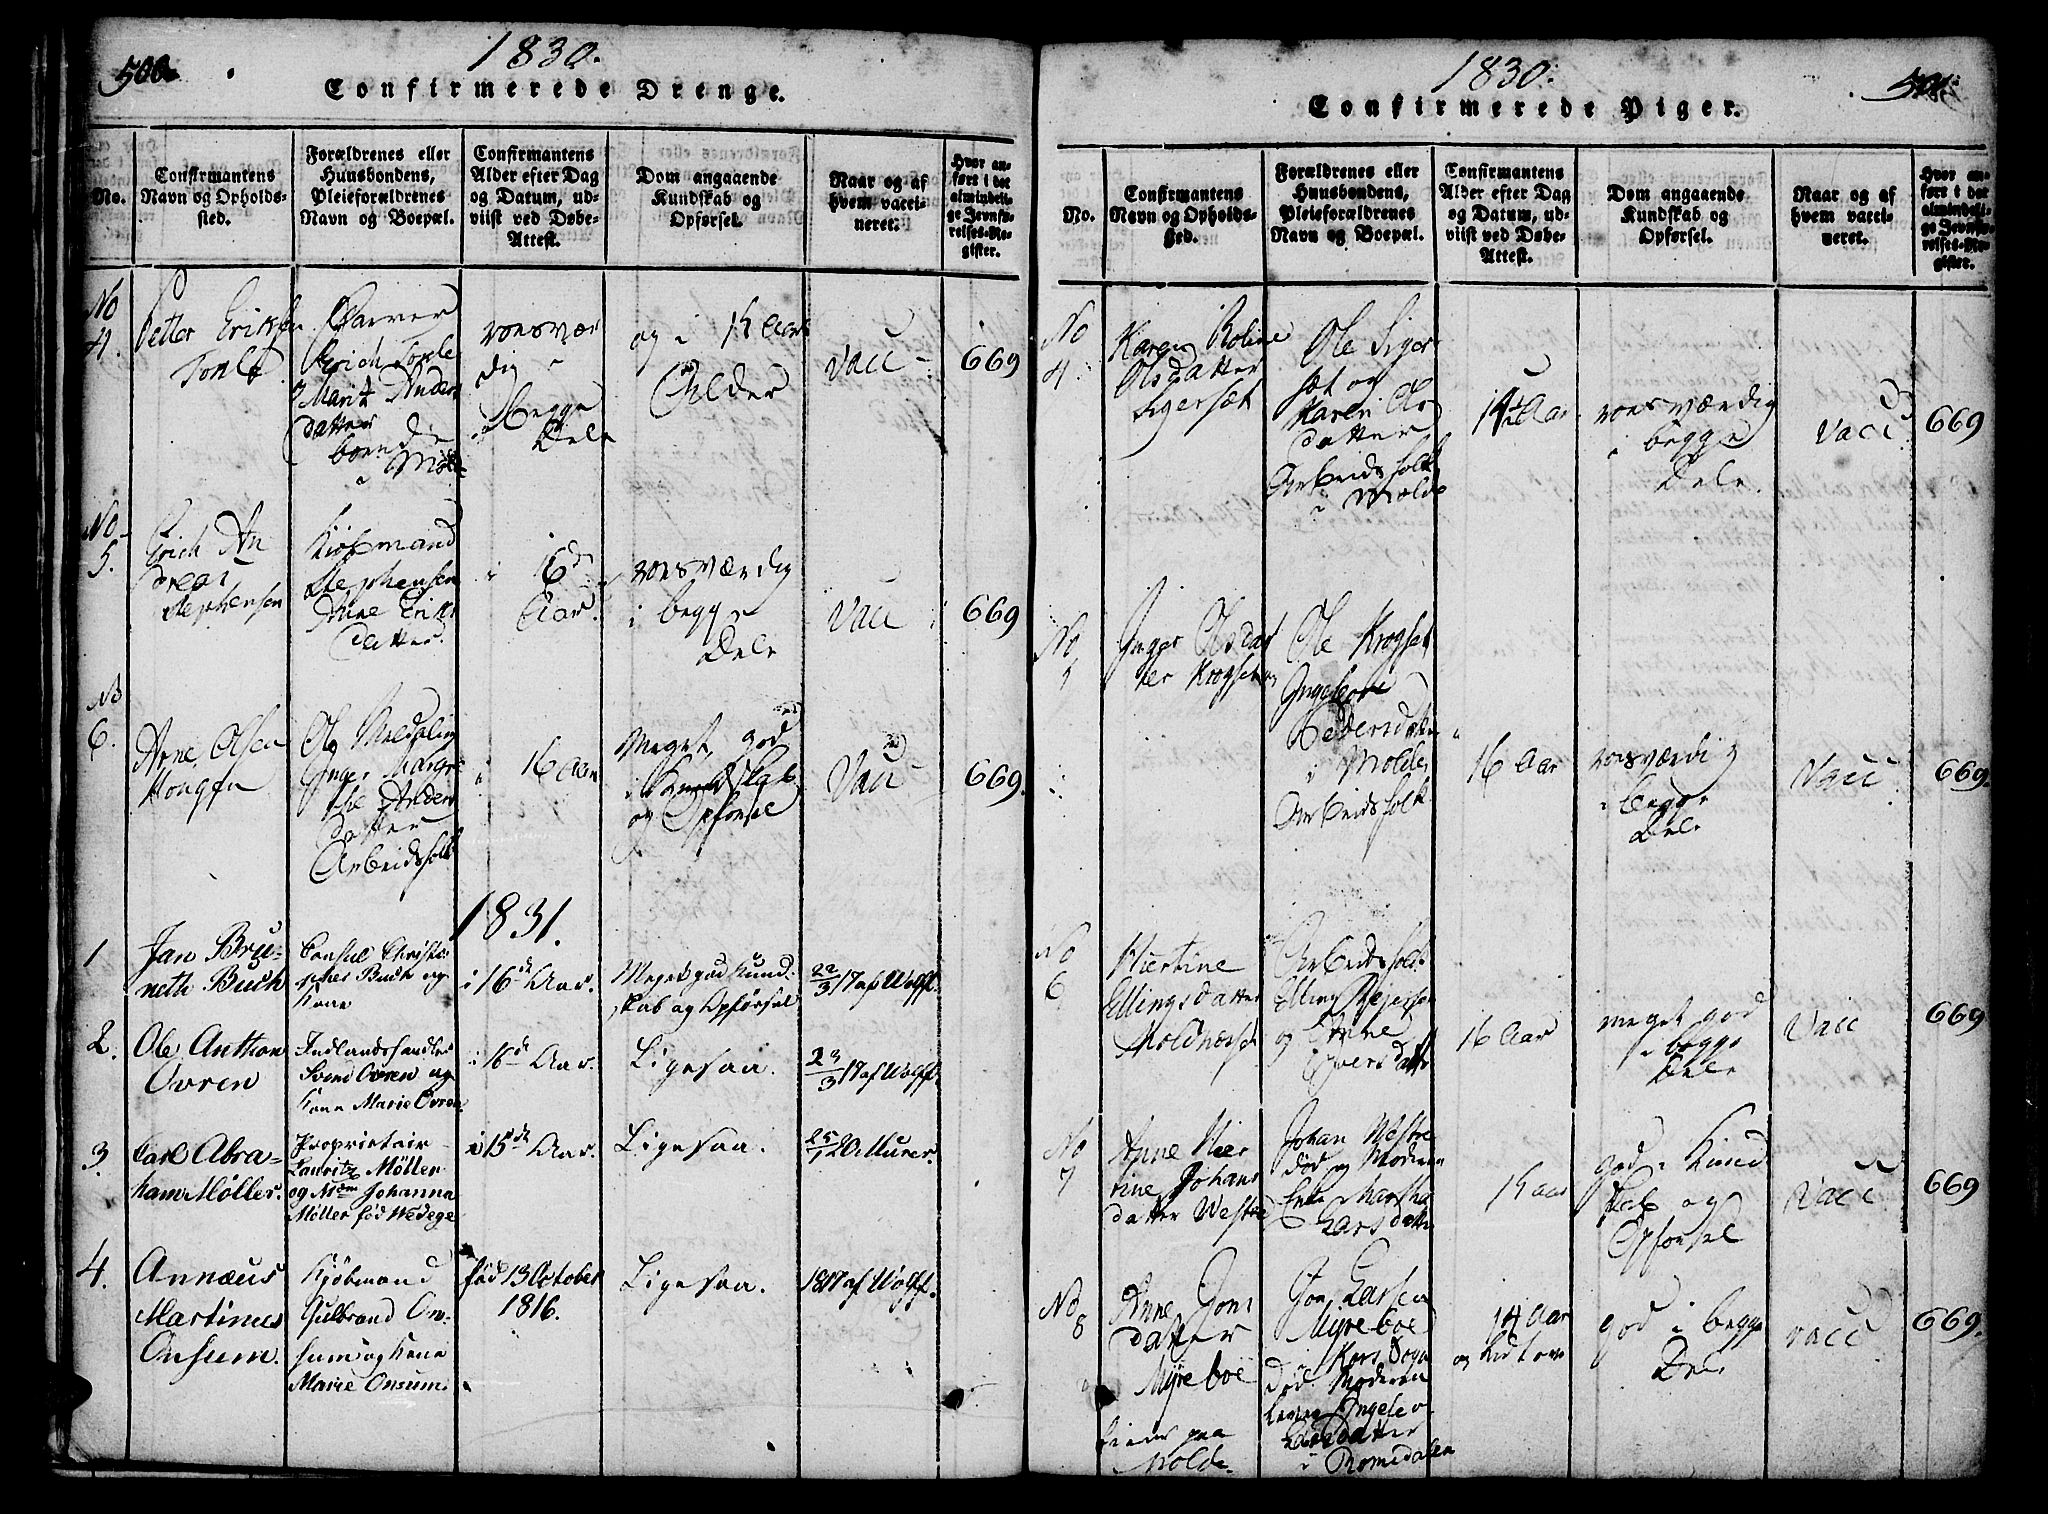 500.
1830.
Confirmerede Drenge.
No.
Confirmantens
Navn og Opholds-
sted.
Forældrenes eller
Huusbondens,
Pleieforældrenes
Navn og Boepæl.
Confirmantens
Alder efter Dag
og Datum, ud-
viist ved Døbe-
Attest.
Dom angaaende
Kundskab og
Opførsel.
Naar og af
hvem vacci-
neret.
Hvor an-
ført i det
almindeli-
ge Jevnfø-
relses-Re-
gister.
No
4.
Petter Eriksen
Tonle
Erich Tonle
Marit Anders
datter
boende
i Molde
vorsvær
dig
i Begge
Dele
og i
Alder
Vacc
669
No
5.
Erich An
dreas
Stephensen
Kiøbmand
Stephensen
Anne Eriks
datter.
i 16de
Aar.
vorsværdig
i begge
Dele
Vacc
669
No
6.
Arne Olsen
Ole Meldalin
Inger Margre
the Anders
datter
Arbeidsfolk
i 16 Aar
Meget god
i Kundskab
og Opforsel
Vacc
669.
1831.
1
Jan Bru-
neth Buch
Consul Christo-
pher Buch og
Kone
i 16de Aar.
Meget god Kund-
skab og Opførsel
22/3 17 af Wolff.
2.
Ole Anthon
Ovren
Indlandshandler
Svend Ovren og
Kone Marie Ovren
i 16de Aar.
Ligesaa.
23/3 17 af Wolff.
3.
Carl Abra-
ham Møller.
Proprietair
Lauritz Møller
og Mdm Johanna
Møller fød Wedege
i 15de Aar.
Ligesaa.
25/1 20. Murer.
4.
Annæus
Martinus
Onsum.
Kjøbmand
Gulbrand On-
sum og Kone
Marie Onsum.
fød 13 October
1816.
Ligesaa.
1817 af Wolff.
1830.
501.
Confirmerede Piger.
No.
Confirmantens
Navn og Opholds-
sted.
Forældrenes eller
Huusbondens,
Pleieforældrenes
Navn og Boepæl.
Confirmantens
Alder efter Dag
og Datum, ud-
viist ved Døbe-
Attest.
Dom angaaende
Kundskab og
Opførsel.
Naar og af
hvem vacci-
neret.
Hvor an-
ført i det
almindeli-
ge Jevnfø-
relses-Re-
gister.
No
4.
Karen Roline
Olsdatter
Sigerset
Ole Siger
set og
Karen
datter
Arbeidsfolk
i Molde
Aar
vorsværdig
i begge
Dele.
Vacc
669
No
5
Inger Olsdat
ter Krogset
Ole Krogset
Ingeborg
Pedersdatter
i Molde,
Arbeidsfolk
16 Aar
vorsværdig
i begge
Dele
Vacc
669.
No
6
Kiertine
Ellingsdatter
Moldnesset
Arbeidsfolk
Elling
og Anne
Iversdatter
16 Aar
meget god
i begge
Dele
Vacc
669
No
7
Anne Kier
tine Johans
datter Westre
Johan Westre
død og Moderen
Enke Martha
Larsdatter
god i Kund
skab og
Opforsel
Vacc
669
No
8
Anne Jons
datter
Myreboe
tiener paa
Molde.
Jon Larsen
Myreboe
i Kors Sogn
død. Moderen
Ingebor
Larsdatter
i Romsdalen
14 Aar
og lidt over
god i begge
Dele
vacc
669.